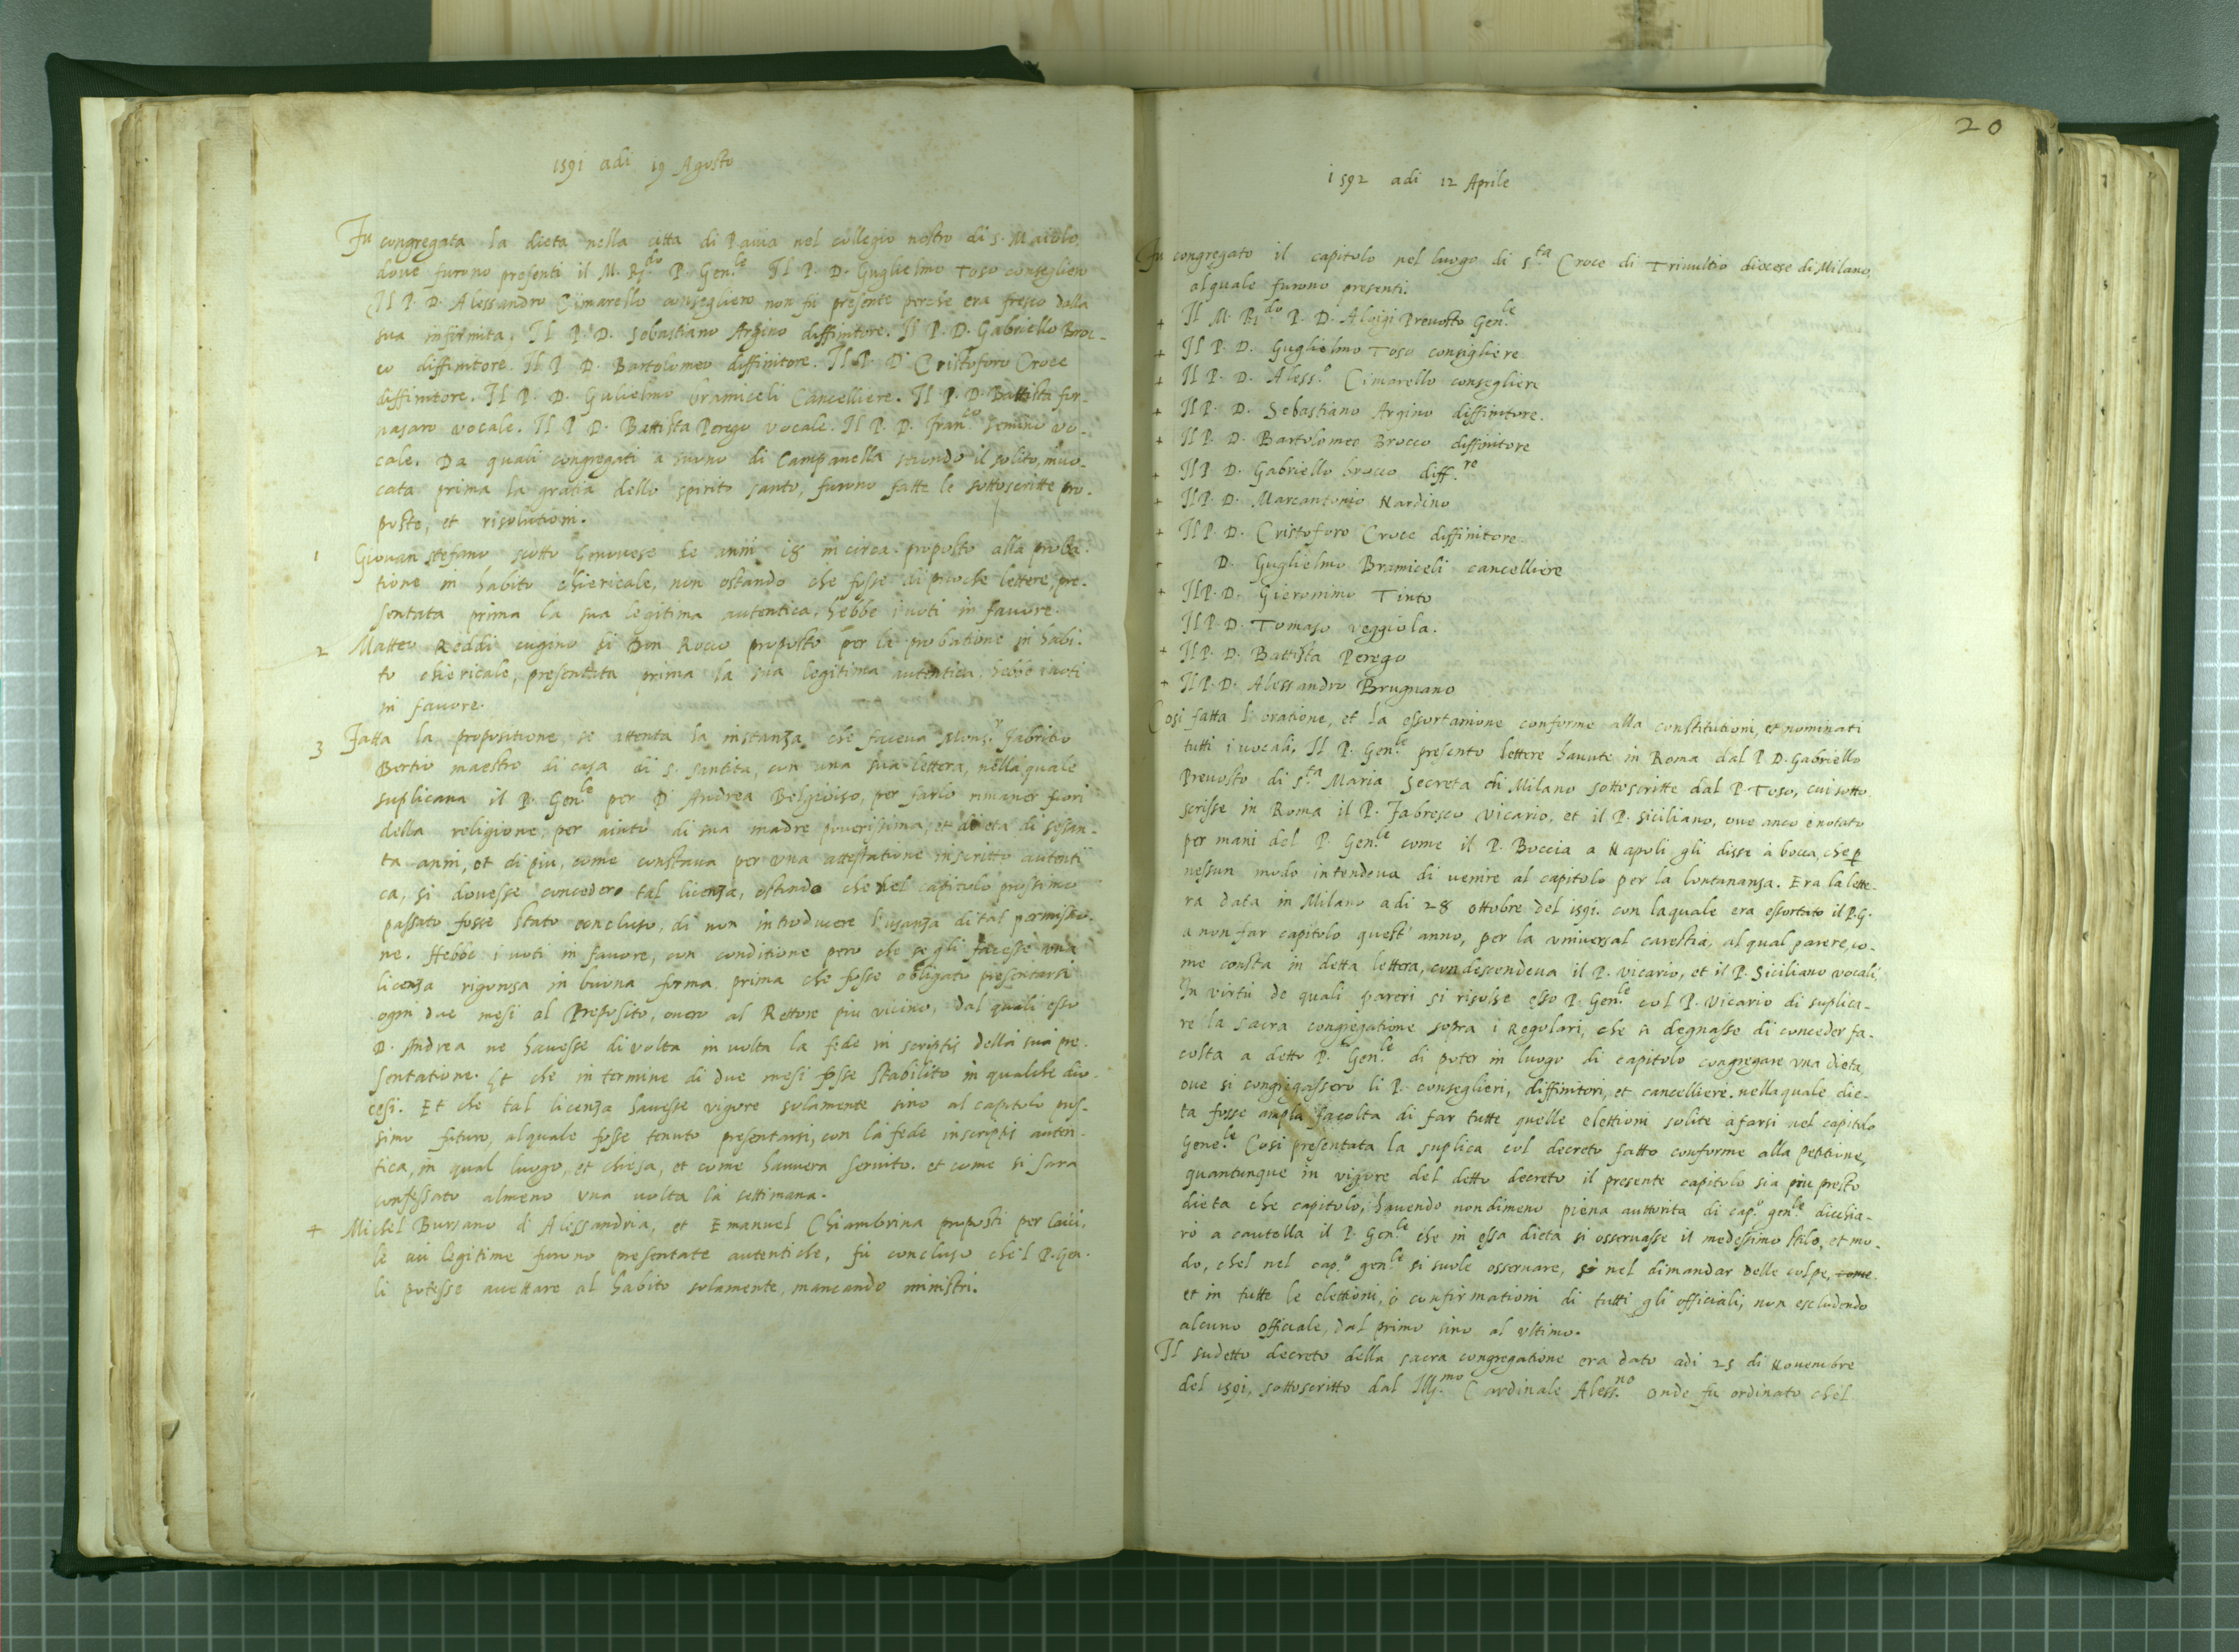 1591 adi 19 Agosto
Fu congregata la dieta nella citta di Pavia nel collegio nostro di s. Maiolo,
dove furono presenti il M. R.do P. Gen.le Il P. D. Guglielmo Toso consegliero
Il P. D. Alessandro Cimarello consegliero non fù presente perche era fresco dalla
sua infirmita. Il P. D. Sebastiano Argino diffinitore. Il P. D. Gabriello Broc-
co diffinitore. Il P. D. Bartolomeo diffinitore. Il P. D. Cristoforo Croce
diffinitore. Il P. D. Gulielmo bramiceli Cancelliere. Il P. D. Battista for-
nasaro vocale. Il P. D. Battista Perego vocale. Il P. D. Fran.co Semino vo-
cale. Da quali congregati a suono di Campanella secondo il solito, invo-
cata prima la gratia dello spirito santo, furono fatte le sottoscritte pro-
poste, et risolutioni.
1 Giovan stefano scotto Genovese de anni 18 in circa proposto alla proba-
tione in habito chiericale, non ostando che fosse di puoche lettere, pre-
sentata prima la sua legitima autentica, hebbe i voti in favore.
2 Matteo Reddi cugino di Don Rocco proposto per la probatione in habi-
to chiericale, presentata prima la sua legitima autentica, hebbe i voti
in favore.
3 Fatta la propositione, se attenta la instanza che faceva Mons.r Fabritio
Bertio maestro di casa di s. santita, con una sua lettera, nella quale
suplicava il P. Gen.le per D. Andrea Belgioiso, per farlo rimaner fuori
della religione, per aiuto di sua madre poverissima, et di eta di sessan-
ta anni, et di piu, come constava per una attestatione inscritto autenti
ca, si dovesse concedere tal licenza, ostando che nel capitolo prossimo
passato fosse stato concluso, di non introducere l'usanza di tal permissio-
ne. Hebbe i voti in favore, con conditione pero che se gli facesse una
licenza rigorosa in buona forma, prima che fosse obligato presentarsi
ogni due mesi al Preposito, overo al Rettore piu vicino, dal quali esso
D. Andrea ne havesse di volta in volta la fede in scriptis della sua pre-
sentatione. Et che in termine di due mesi fosse stabilito in qualche dio-
cesi. Et che tal licenza havesse vigore solamente sino al capitolo pros-
simo futuro, al quale fosse tenuto presentarsi, con la fede inscriptis auten-
tica, in qual luogo, et chiesa, et come havvera servito. et come si sara
confessato almeno una volta la settimana.
4 Michel Bursano di Alessandria, et Emanuel Chiambrina proposti per laici,
le cui legitime furono presentate autentiche, fù concluso che'l P. Gen.
li potesse accettare al habito solamente, mancando ministri.
20
1592 adi 12 Aprile
Fu congregato il capitolo nel luogo di S.ta Croce di Trivultio diocese di Milano,
al quale furono presenti.
+ Il M. R.do P. D. Aloigi Prevosto Gen.le
+ Il P. D. Guglielmo Toso consigliere
+ Il P. D. Aless.o Cimarello consegliere
+ Il P. D. Sebastiano Argino diffinitore.
+ Il P. D. Bartolomeo Brocco diffinitore
+ Il P. D. Gabriello brocco diff.re
+ Il P. D. Marcantonio Nardino
+ Il P. D. Cristoforo Croce diffinitore
+ D. Guglielmo Bramiceli cancelliere
+ Il P. D. Gieronimo Tinto
Il P. D. Tomaso Veggiola.
+ Il P. D. Battista Perego
+ Il P. D. Alessandro Brugnano
Cosi fatta l'oratione, et la essortanione conforme alla constitutioni, et nominati
tutti i vocali. Il P. Gen.le presento lettere havute in Roma dal P. D. Gabriello
Prevosto di s.ta Maria Secreta di Milano sottoscritte dal P. Toso, cui sotto
scrisse in Roma il P. Fabresco vicario, et il P. Siciliano, ove anco è notato
per mani del P. Gen.le come il P. Boccia a Napoli gli disse à bocca, che p
nessun modo intendeva di venire al capitolo per la lontananza. Era la lette-
ra data in Milano adi 28 ottobre del 1591. con laquale era essortato il P. G.
a non far capitolo quest'anno, per la universal carestia, al qual parere, co-
me consta in detta lettera, condescendeva il P. vicario, et il P. Siciliano vocali,
In virtù de quali pareri si risolse esso P. Gen.le col P. Vicario di suplica-
re la sacra congregatione sopra i Regolari, che si degnasse di conceder fa-
colta a detto P. Gen.le di poter in luogo di capitolo congregare una dieta,
ove si congregassero li P. conseglieri, diffinitori, et cancelliere. nella quale die-
ta fosse ampla facolta di far tutte quelle elettioni solite à farsi nel capitolo
Gene.le Cosi presentata la suplica col decreto fatto conforme alla petitione,
quantunque in vigore del detto decreto il presente capitolo sia piu presto
dieta che capitolo, havendo nondimeno piena auttorita di cap.o gen.le dicchia-
rò a cautella il P. Gen.le che in essa dieta si osservasse il medessimo stilo, et mo-
do, chel nel cap.o gen.le si suole osservare, si nel dimandar delle colpe, come
et in tutte le elettioni, ò confirmationi di tutti gli officiali, non escludendo
alcuno officiale, dal primo sino al ultimo.
Il sudetto decreto della sacra congregatione era dato adi 25 di Novembre
del 1591, sottoscritto dal Ill.mo Cardinale Aless.no onde fu ordinato chel